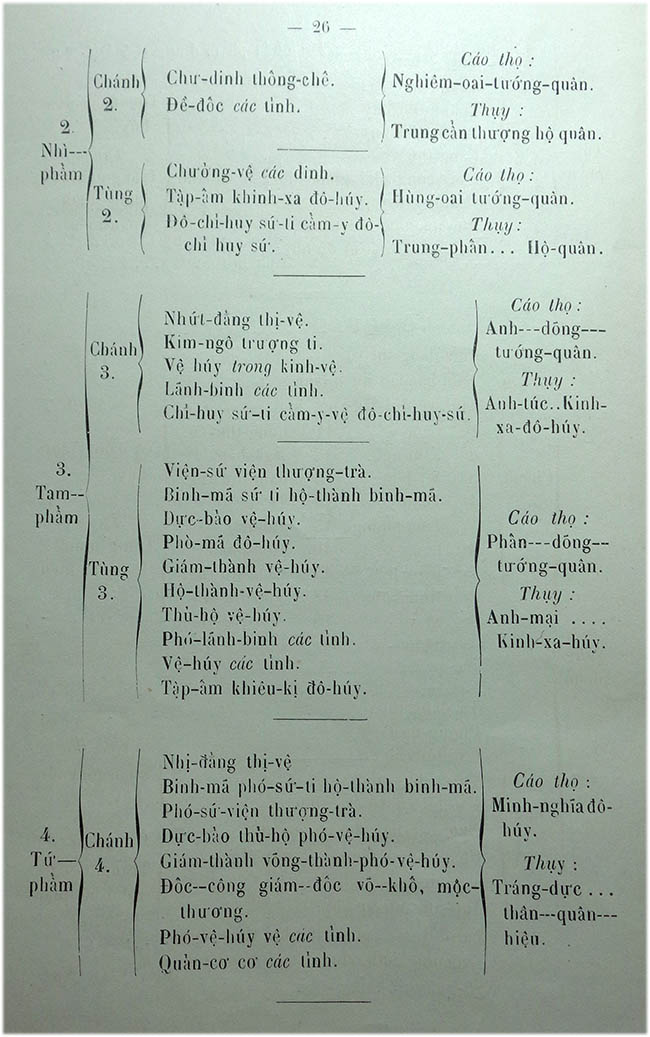 — 26 —
2.
Nhì---
phẩm
Chánh
2.
Chư-dinh thông-chê.
Đề-đôc các tỉnh.
Cáo thọ :
Nghiêm-oai-tướng-quân.
Thụy :
Trung cần thượng hộ quân.
Tùng
2.
Chưởng-vệ các dinh.
Tập-âm khinh-xa đô-húy.
Đô-chỉ-huy sứ-ti cẩm-y đô-
chỉ huy sứ.
Cáo thọ :
Hùng-oai tướng-quân.
Thụy:
Trung-phân... Hộ-quân.
3.
Tam--
phẩm
Chánh
3.
Nhứt-đẳng thị-vệ.
Kim-ngô trượng ti.
Vệ húy trong kinh-vệ.
Lãnh-binh các tỉnh.
Chỉ-huy sứ-ti cẩm-y-vệ đô-chỉ-huy-sứ.
Cáo thọ :
Anh---dõng---
tướng-quân.
Thụy :
Anh-túc..Kinh-
xa-đô-húy.
Tùng
3.
Viện-sứ viện thượng-trà.
Binh-mã sứ ti hộ-thành binh-mã.
Dực-bảo vệ-húy.
Phò-mã đô-húy.
Giám-thành vệ-húy.
Hộ-thành-vệ-húy.
Thủ-hộ vệ-húy.
Phó-lãnh-binh các tỉnh.
Vệ-húy các tỉnh.
Tập-âm khiêu-kị đô-húy.
Cáo thọ :
Phân---dõng--
tướng-quân.
Thụy :
Anh-mại ....
Kinh-xa-húy.
4.
Tứ—
phẩm
Chánh
4.
Nhị-đẳng thị-vệ
Binh-mã phó-sứ-ti hộ-thành binh-mã.
Phó-sứ-viện thượng-trà.
Dực-bảo thủ-hộ phó-vệ-húy.
Giám-thành võng-thành-phó-vệ-húy.
Đôc--công giám--đôc võ--khô, mộc-
thương.
Phó-vệ-húy vệ các tỉnh.
Quản-cơ cơ các tỉnh.
Cáo thọ :
Minh-nghĩa đô-
húy.
Thụy :
Tráng-dực ...
thân---quân---
hiệu.